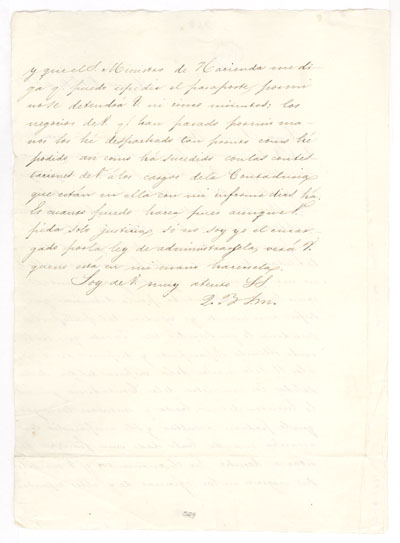 y que el S. Ministro de Hacienda me di
ga q. puedo espedir el pasaporte, por mi
no se detendrá V. ni cinco minutos; los
negocios de V. q. han pasado por mis ma
nos los he despachado tan pronto como he
podido, asi como ha sucedido con las contes
taciones de V. á los cargos de la Contaduria
que están en ella con mi informe dias ha.
Lo mas puedo hacer pues aunque V.
pida solo justicia, si no soy yo el encar
gado por la ley de administrarsela, verá V.
que no está en mi mano hacersela.
Soy de V. muy atento S. S.
Q. B. S. m.